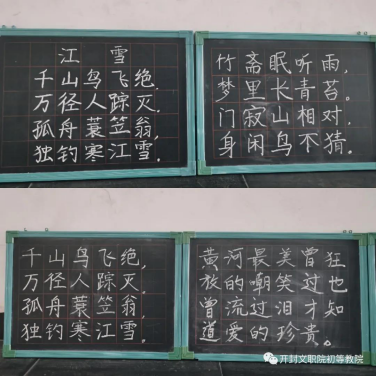 江雪
千山鸟飞绝,
万径人踪灭,
孤舟蓑笠翁,
独钓寒江雪。
竹斋眠听雨,
梦里长青苔。
门寂山相对,
身闲鸟不猜。
千山鸟飞绝,
万径人踪灭,
孤舟蓑笠翁,
独钓寒江雪。
黄河最美曾狂
放的嘲笑过也
曾流过泪才知
道爱的珍贵。
开封文职院初等教院